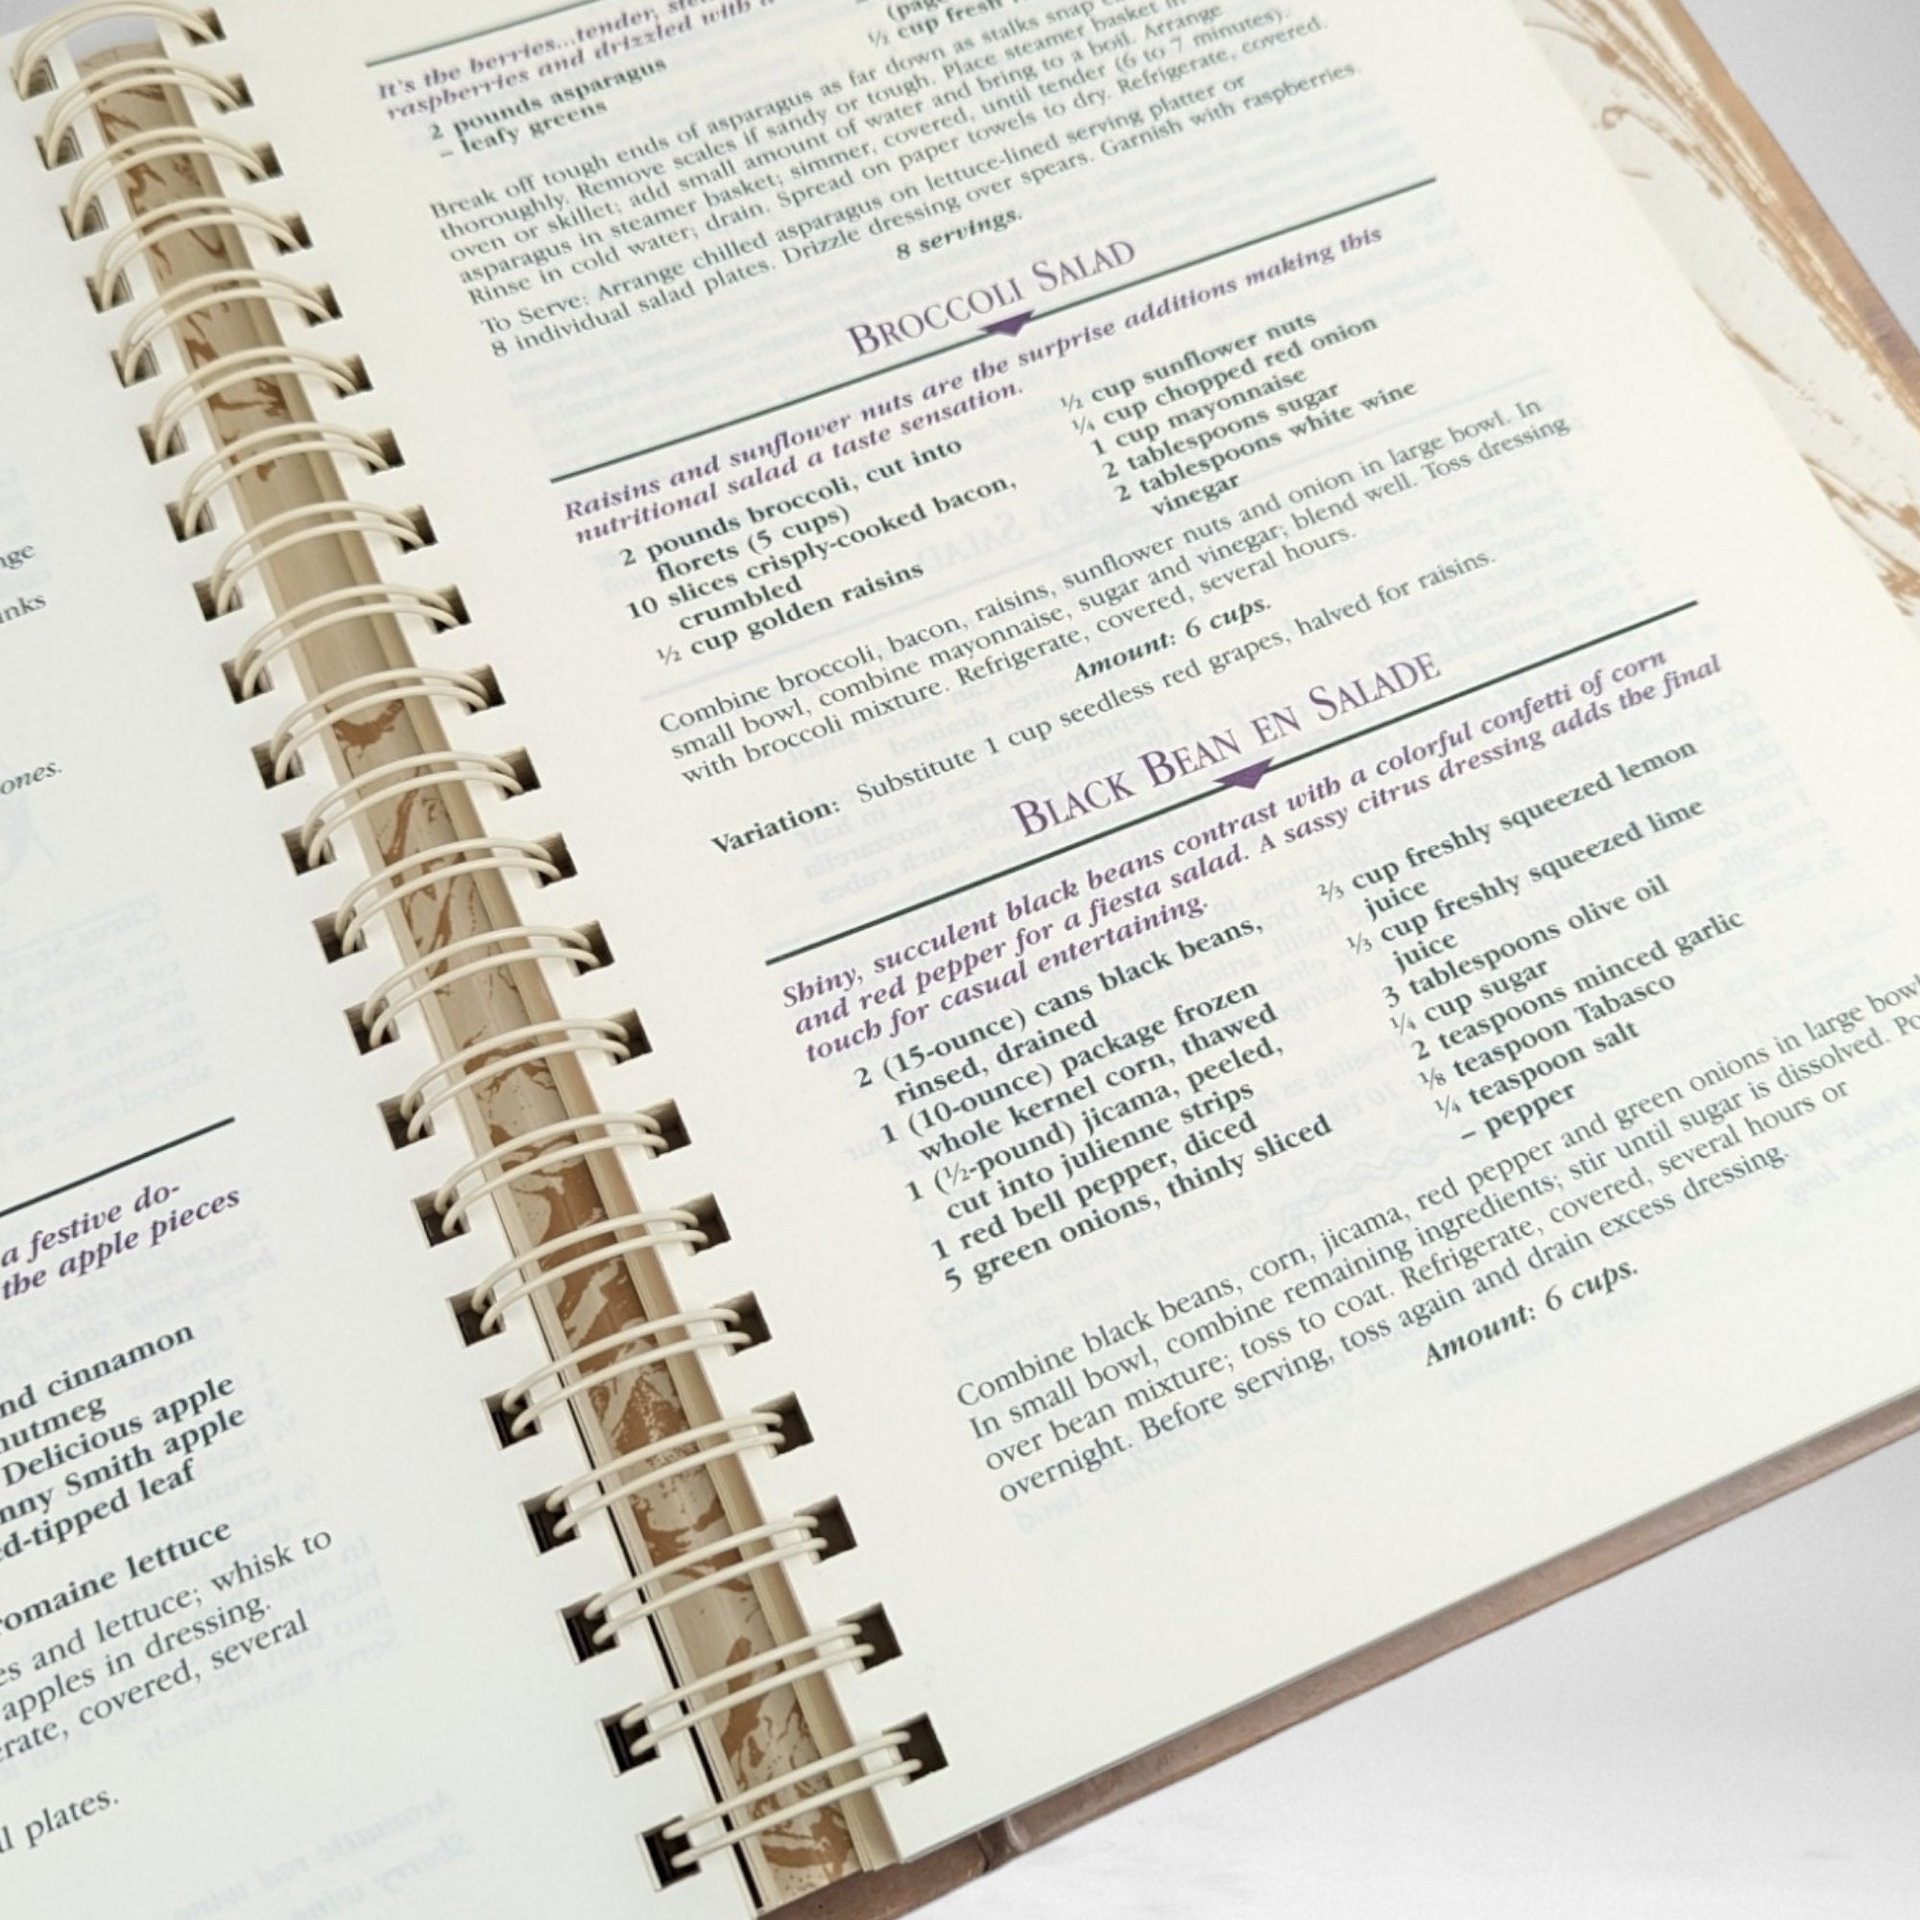 nge
inks
ones.
a festive do-
the apple pieces
nd cinnamon
nutmeg
Delicious apple
nny Smith apple
ed-tipped leaf
romaine lettuce
es and lettuce; whisk to
apples in dressing.
erate, covered, several
ll plates.
It's the berries...tender,
raspberries and drizzled with a
2 pounds asparagus
– leafy greens
(pag
½ cup fresh
Break off tough ends of asparagus as far down as stalks snap
thoroughly. Remove scales if sandy or tough. Place steamer basket in
oven or skillet; add small amount of water and bring to a boil. Arrange
asparagus in steamer basket; simmer, covered, until tender (6 to 7 minutes).
Rinse in cold water; drain. Spread on paper towels to dry. Refrigerate, covered.
To Serve: Arrange chilled asparagus on lettuce-lined serving platter or
8 individual salad plates. Drizzle dressing over spears. Garnish with raspberries.
8 servings.
BROCCOLI SALAD
Raisins and sunflower nuts are the surprise additions making this
nutritional salad a taste sensation.
2 pounds broccoli, cut into
florets (5 cups)
10 slices crisply-cooked bacon,
crumbled
½ cup golden raisins
½ cup sunflower nuts
¼ cup chopped red onion
1 cup mayonnaise
2 tablespoons sugar
2 tablespoons white wine
vinegar
Combine broccoli, bacon, raisins, sunflower nuts and onion in large bowl. In
small bowl, combine mayonnaise, sugar and vinegar; blend well. Toss dressing
with broccoli mixture. Refrigerate, covered, several hours.
Amount: 6 cups.
Variation: Substitute 1 cup seedless red grapes, halved for raisins.
BLACK BEAN EN SALADE
Shiny, succulent black beans contrast with a colorful confetti of corn
and red pepper for a fiesta salad. A sassy citrus dressing adds the final
touch for casual entertaining.
2 (15-ounce) cans black beans,
rinsed, drained
1 (10-ounce) package frozen
whole kernel corn, thawed
1 (½-pound) jicama, peeled,
cut into julienne strips
1 red bell pepper, diced
5 green onions, thinly sliced
⅔ cup freshly squeezed lemon
juice
⅓ cup freshly squeezed lime
juice
3 tablespoons olive oil
¼ cup sugar
2 teaspoons minced garlic
⅛ teaspoon Tabasco
¼ teaspoon salt
– pepper
Combine black beans, corn, jicama, red pepper and green onions in large bowl.
In small bowl, combine remaining ingredients; stir until sugar is dissolved. Po
over bean mixture; toss to coat. Refrigerate, covered, several hours or
overnight. Before serving, toss again and drain excess dressing.
Amount: 6 cups.